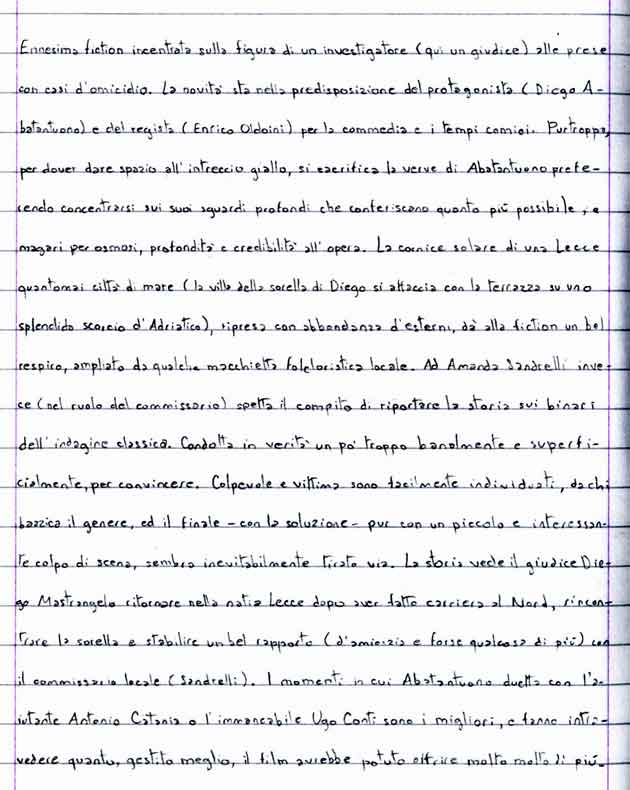 Ennesima fiction incentrata sulla figura di un investigatore (qui un giudice) alle prese
con casi d'omicidio. La novità sta nella predisposizione del protagonista (Diego A-
batantuono) e del regista (Enrico Oldoini) per la commedia e i tempi comici. Purtroppo,
per dover dare spazio all'intreccio giallo, si sacrifica la verve di Abatantuono prefe-
rendo concentrarsi sui suoi sguardi profondi che conferiscano quanto più possibile, e
magari per osmosi, profondità e credibilità all'opera. La cornice solare di una Lecce
quantomai città di mare (la villa della sorella di Diego si affaccia con la terrazza su uno
splendido scorcio d'Adriatico), ripresa con abbondanza d'esterni, dà alla fiction un bel
respiro, ampliato da qualche macchietta folcloristica locale. Ad Amanda Sandrelli inve-
ce (nel ruolo del commissario) spetta il compito di riportare la storia sui binari
dell'indagine classica. Condotta in verità un po' troppo banalmente e superfi-
cialmente, per convincere. Colpevole e vittima sono facilmente individuati, da chi
bazzica il genere, ed il finale - con la soluzione - pur con un piccolo e interessan-
te colpo di scena, sembra inevitabilmente tirato via. La storia vede il giudice Die-
go Mastrangelo ritornare nella natia Lecce dopo aver fatto carriera al Nord, rincon-
trare la sorella e stabilire un bel rapporto (d'amicizia e forse qualcosa di più) con
il commissario locale (Sandrelli). I momenti in cui Abatantuono duetta con l'a-
iutante Antonio Catania o l'immancabile Ugo Conti sono i migliori, e fanno intra-
vedere quanto, gestito meglio, il film avrebbe potuto offrire molto molto di più.